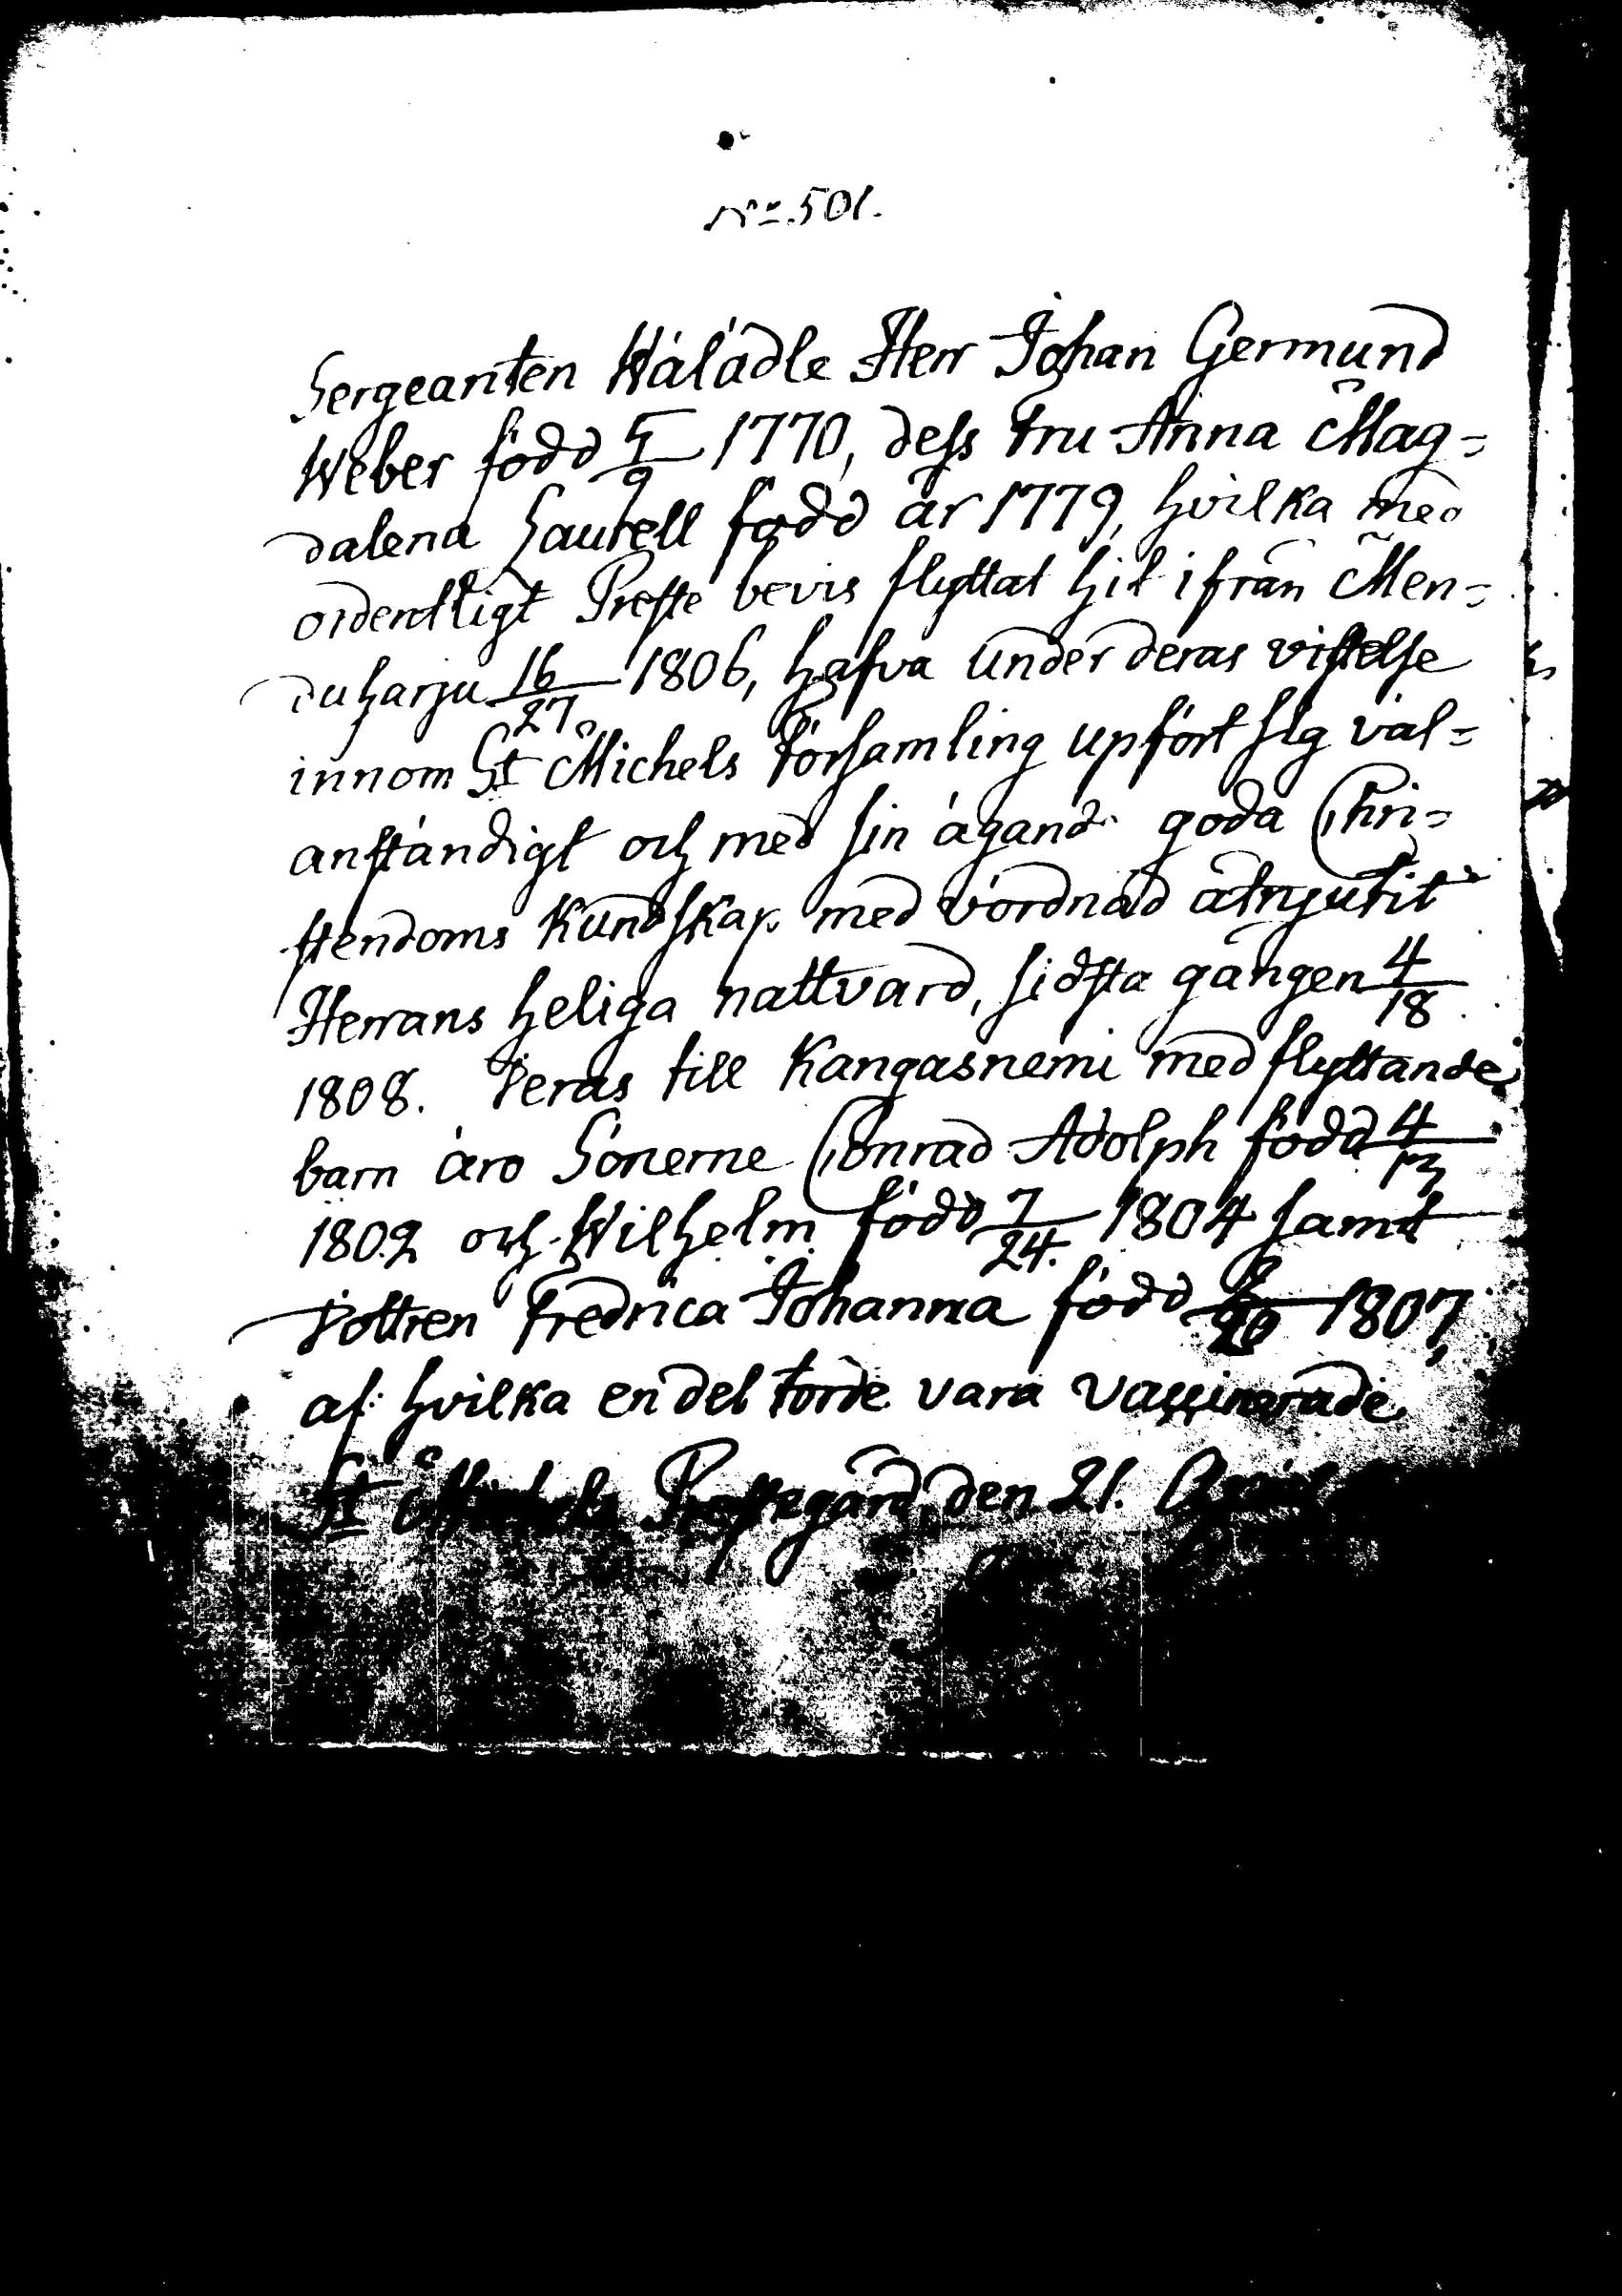 No. 501.
Sergeanten Wälädle Herr Johan Germund
Weber född 5/9 1770, dess Fru Anna Mag=
dalena Saurell född år 1779, hvilka med
ordentligt Preste bevis flyttat hit ifrån Men=
duharju 16/27 1806, hafva under deras vistelse
innom St Michels Församling upfört sig väl=
anständigt och med sin ägande goda Chri=
stendoms Kundskap med vördnad åtnjutit
Herrans heliga nattvard, sidsta gången 4/18
1808. Deras till Kangasnemi med flyttande
barn äro Sönerne Conrad Adolph född 4/13
1802 och Wilhelm född 7/24. 1804 samt
Dottren Fredrica Johanna född 1807,
af hvilka en del torde vara vaccinerade.
St Michels Prestegård, den 21. April